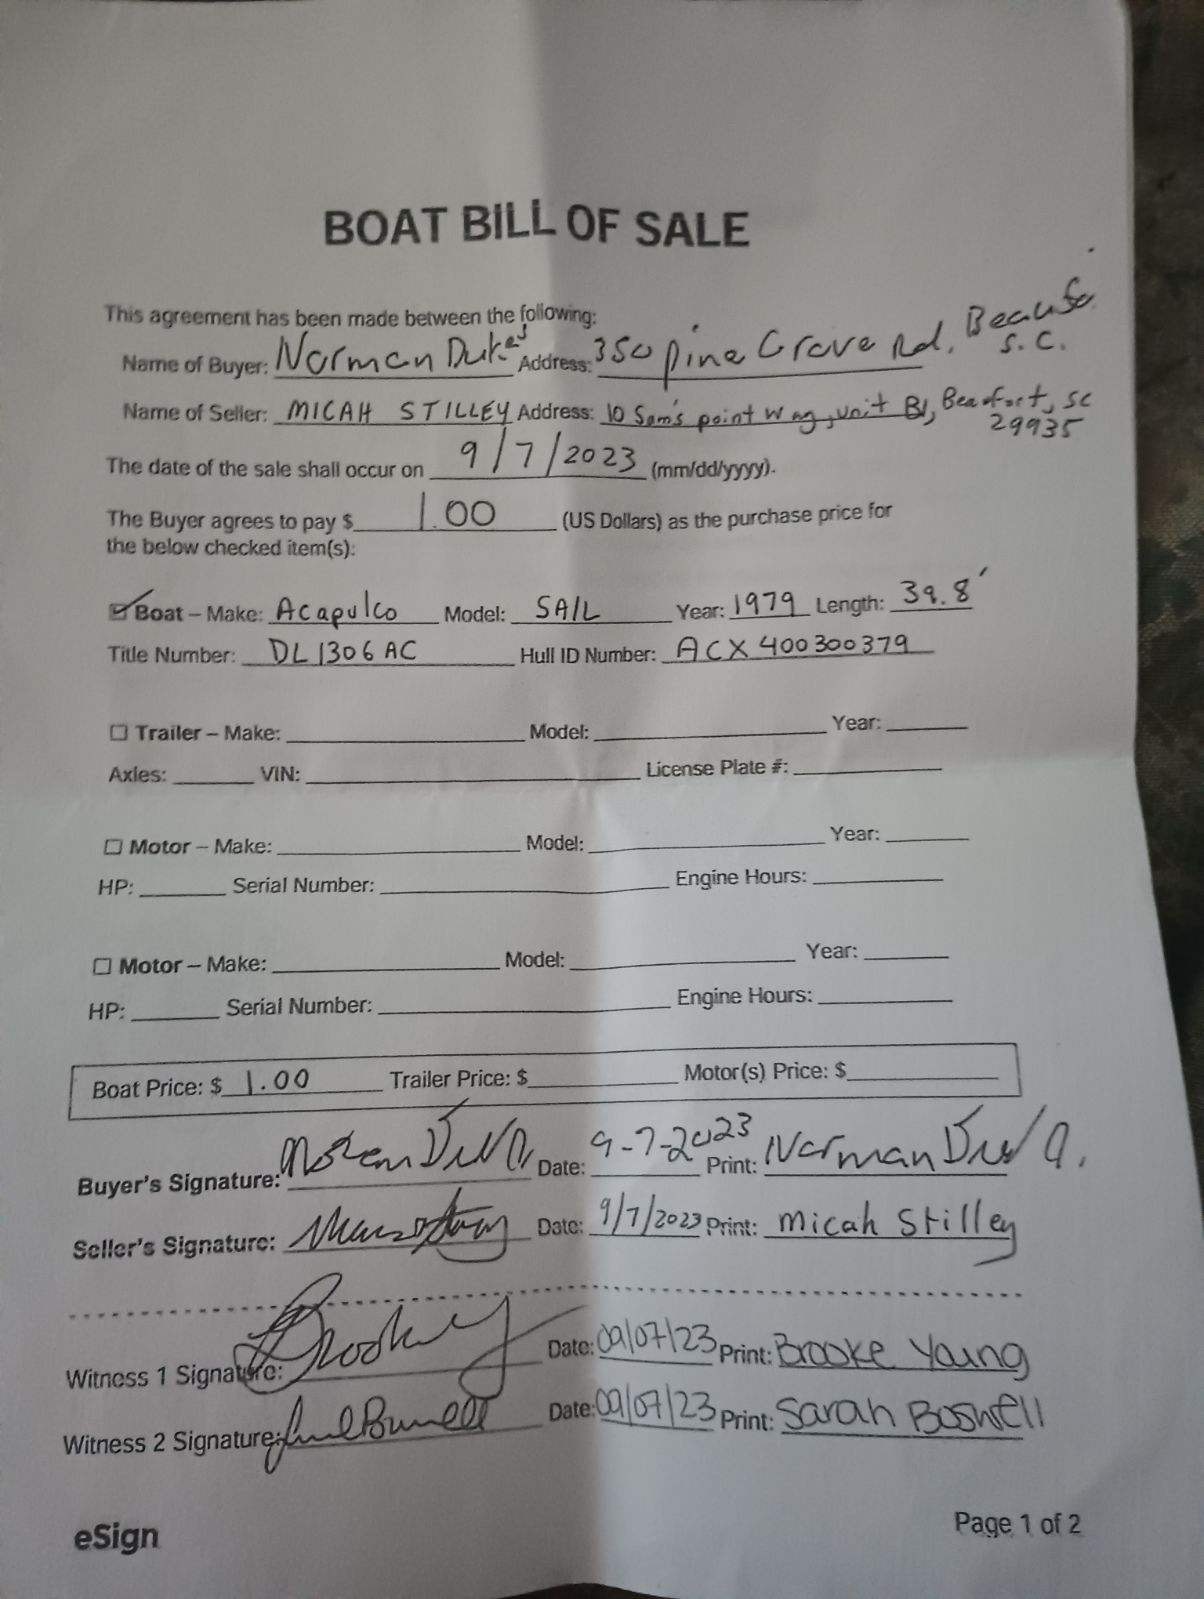 BOAT BILL OF SALE
This agreement has been made between the following:
Name of Buyer: Norman Dukes Address: 350 Pine Grove Rd. S.C.
Name of Seller: MICAH STILLEY Address: 10 Sam's point Way, unit B1, Beaufort, SC 29935
The date of the sale shall occur on 9/7/2023 (mm/dd/yyyy).
The Buyer agrees to pay $ 1.00 (US Dollars) as the purchase price for
the below checked item(s):
☑ Boat – Make: Acapulco Model: SAIL Year: 1979 Length: 39.8'
Title Number: DL1306AC Hull ID Number: ACX400300379
☐ Trailer – Make: Model: Year:
Axles: VIN: License Plate #:
☐ Motor – Make: Model: Year:
HP: Serial Number: Engine Hours:
☐ Motor – Make: Model: Year:
HP: Serial Number: Engine Hours:
Boat Price: $ 1.00 Trailer Price: $ Motor(s) Price: $
Buyer's Signature: Date: 9-7-2023 Print: Norman
Seller's Signature: Date: 9/7/2023 Print: Micah Stilley
Witness 1 Signature: Date: 09/07/23 Print: Brooke Young
Witness 2 Signature: Date: 09/07/23 Print: Sarah Boswell
eSign
Page 1 of 2